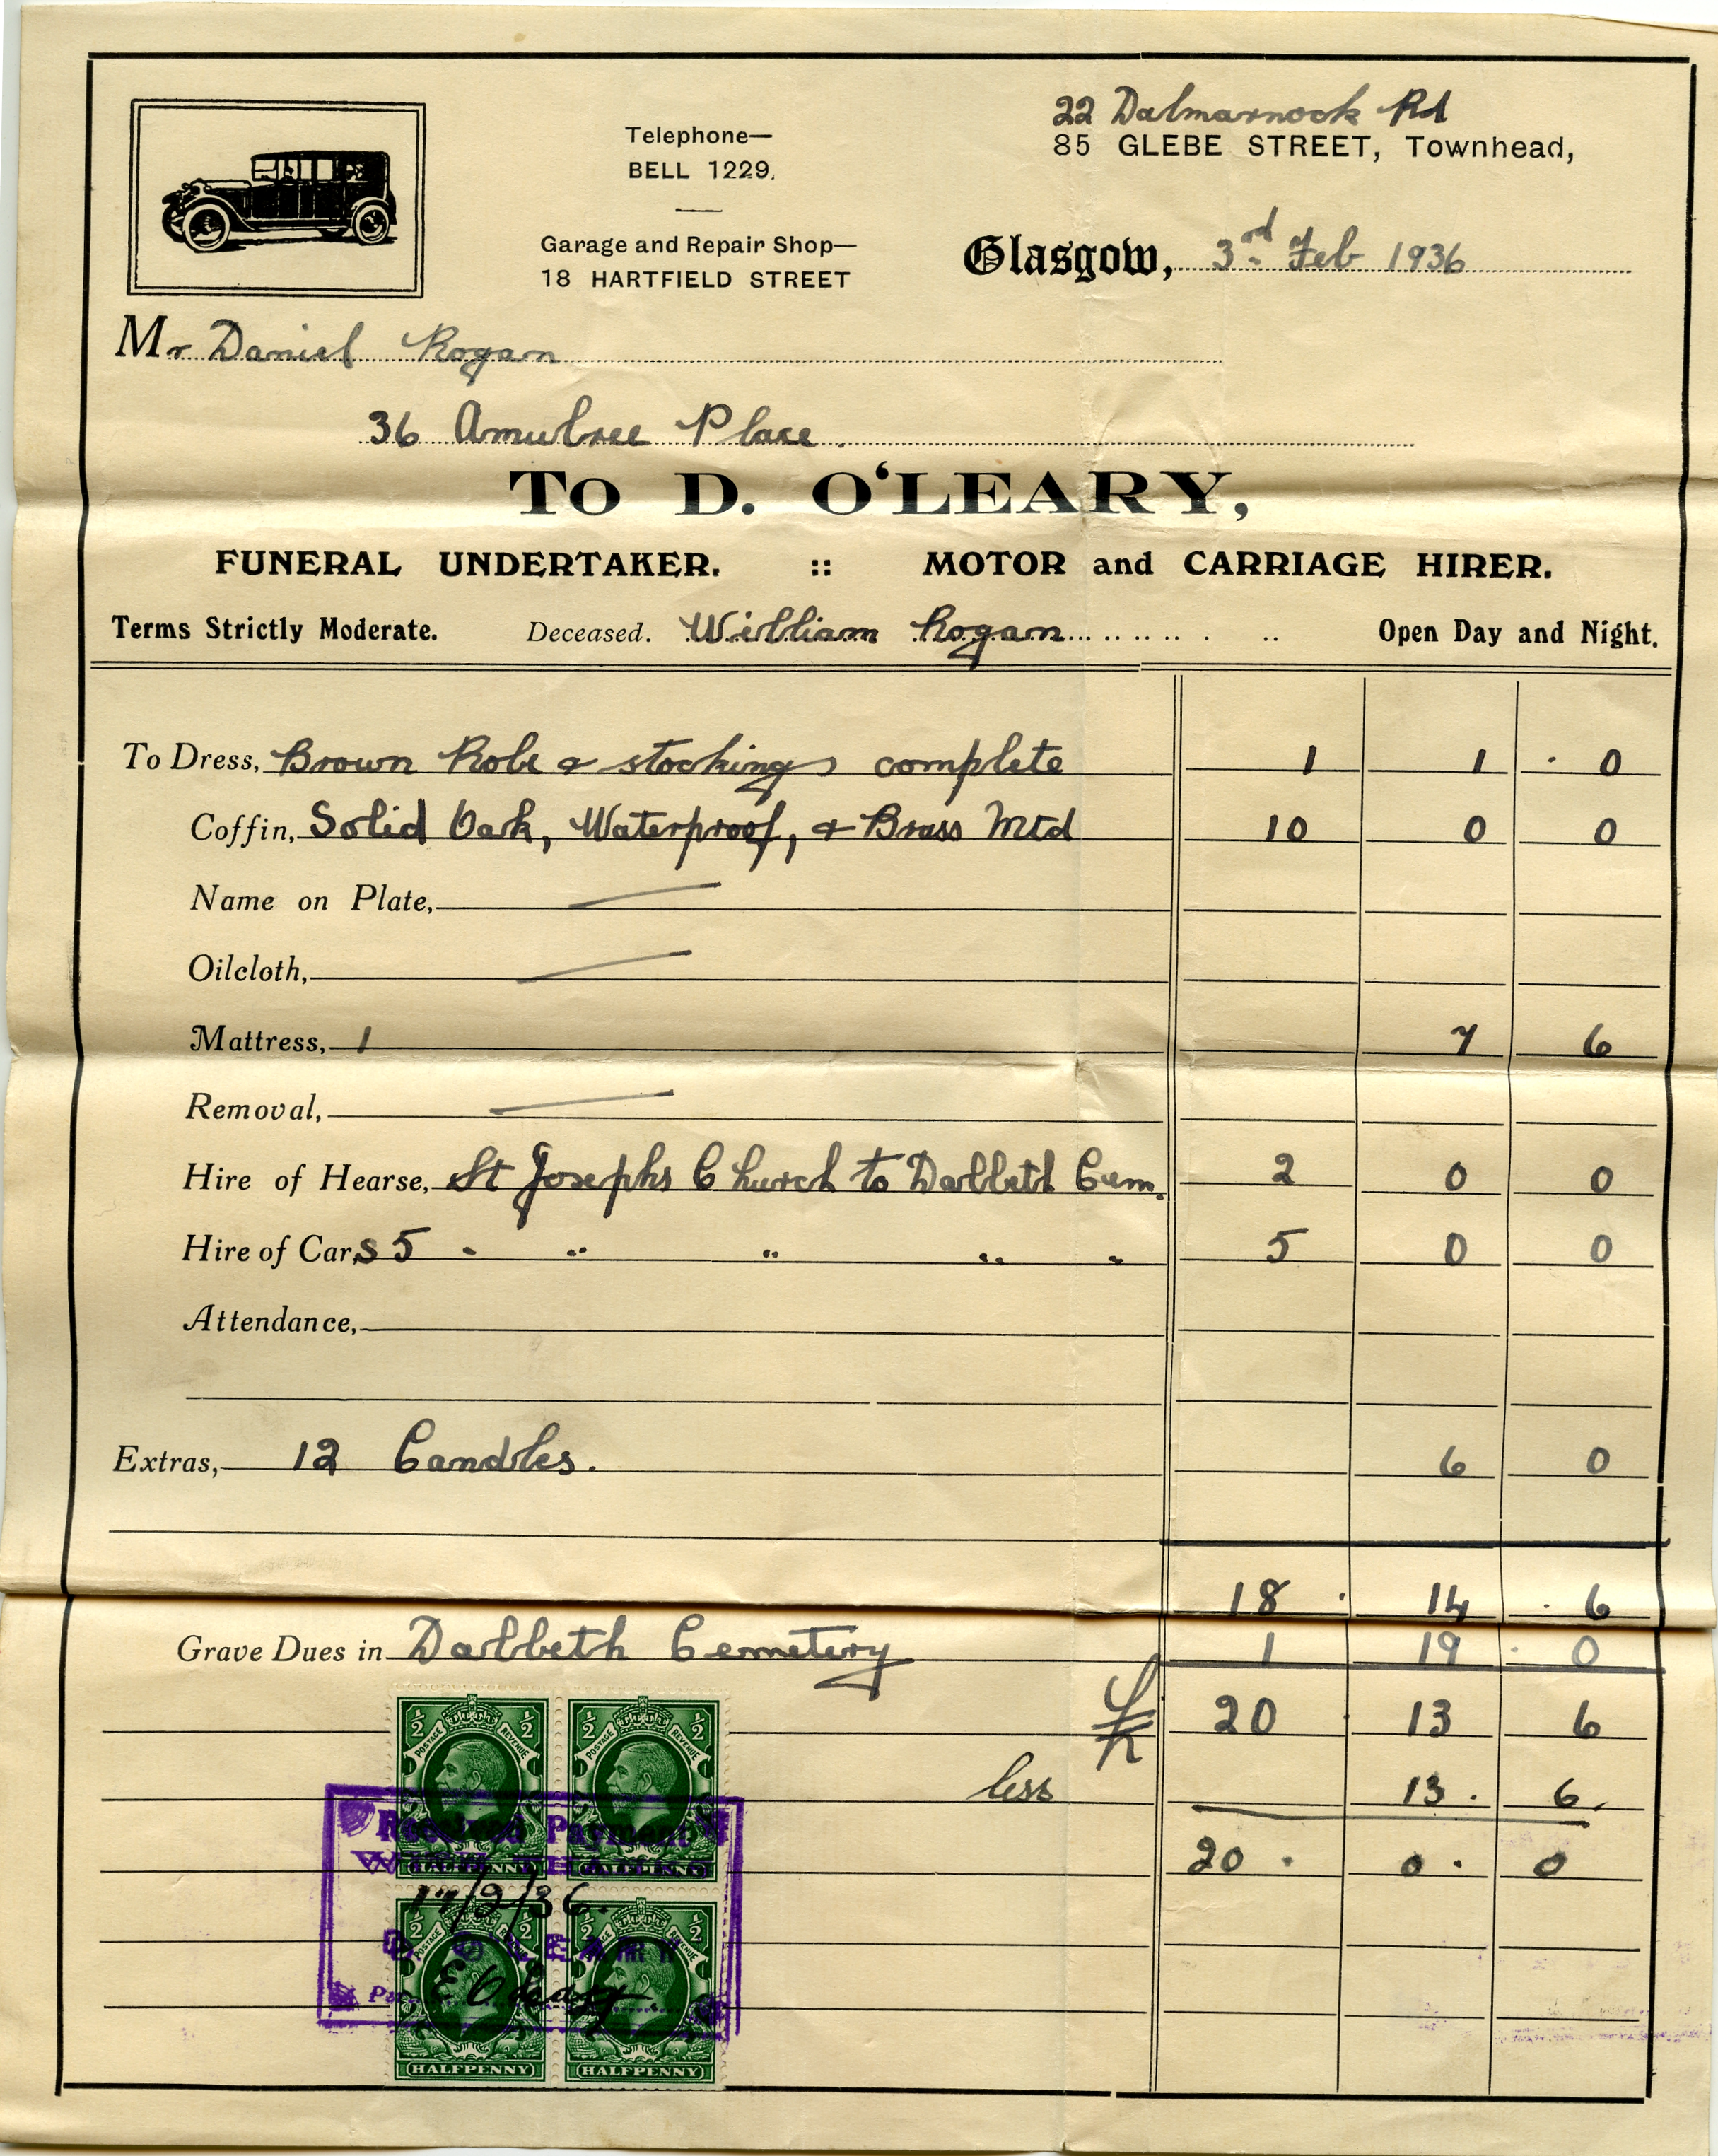 22 Dalmarnock Rd
85 GLEBE STREET, Townhead,
Telephone—
BELL 1229.
Garage and Repair Shop—
18 HARTFIELD STREET
Glasgow, 3rd Feb 1936
Mr Daniel Rogan
36 Amulree Place.
To D. O'LEARY,
FUNERAL UNDERTAKER. :: MOTOR and CARRIAGE HIRER.
Terms Strictly Moderate. Deceased. William Rogan Open Day and Night.
To Dress, Brown Robe & stockings complete 1 1 . 0
Coffin, Solid Oak, Waterproof, & Brass Mtd 10 0 0
Name on Plate, —
Oilcloth, —
Mattress, 1 7 6
Removal, —
Hire of Hearse, St Josephs Church to Dalbeth Cem. 2 0 0
Hire of Cars 5 " " " " " 5 0 0
Attendance,
Extras, 12 Candles. 6 0
18 . 14 . 6
Grave Dues in Dalbeth Cemetery 1 19 . 0
20 13 6
less 13 . 6.
20 . 0 . 0
1/2 1/2 1/2 1/2
POSTAGE REVENUE POSTAGE REVENUE
Received Payment
WITH THANKS
HALFPENNY HALFPENNY
17/2/36.
1/2 1/2 1/2 1/2
POSTAGE REVENUE
D. O'LEARY
Per E O'Leary
HALFPENNY HALFPENNY